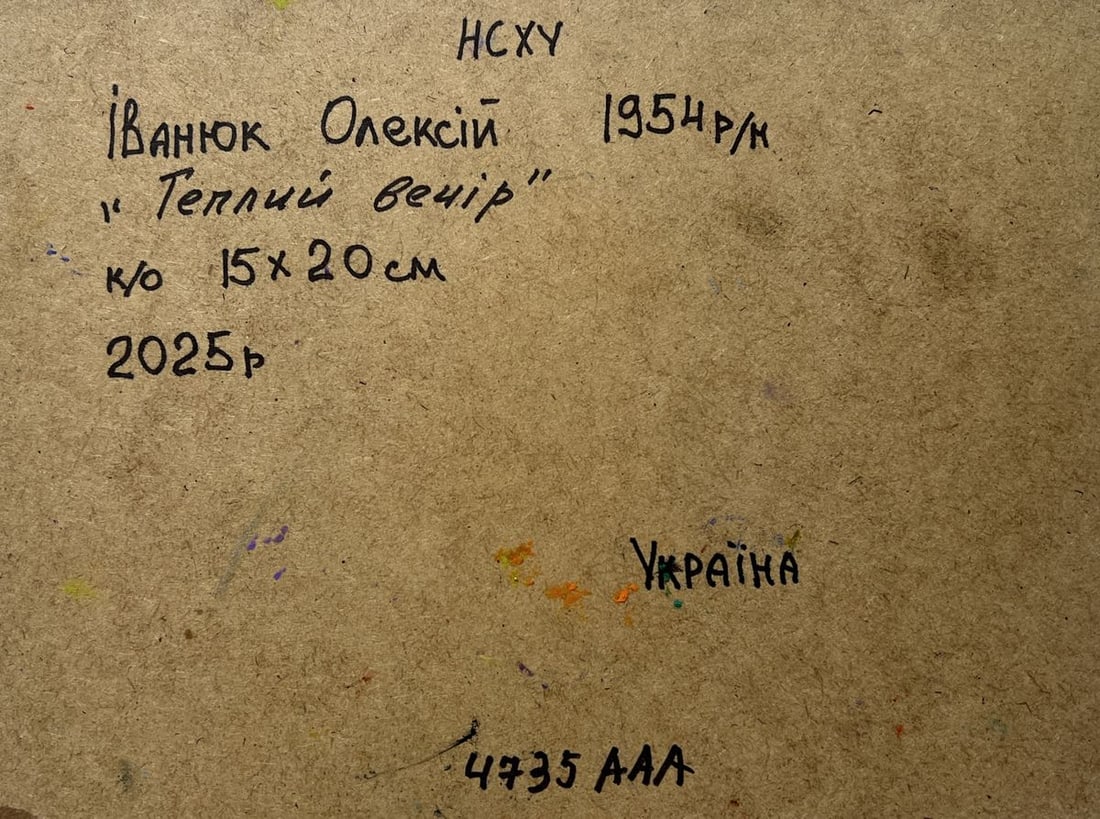 НСХУ
Іванюк Олексій 1954 р/н
"Теплий вечір"
к/о 15х20 см
2025р
Україна
4735 ААА